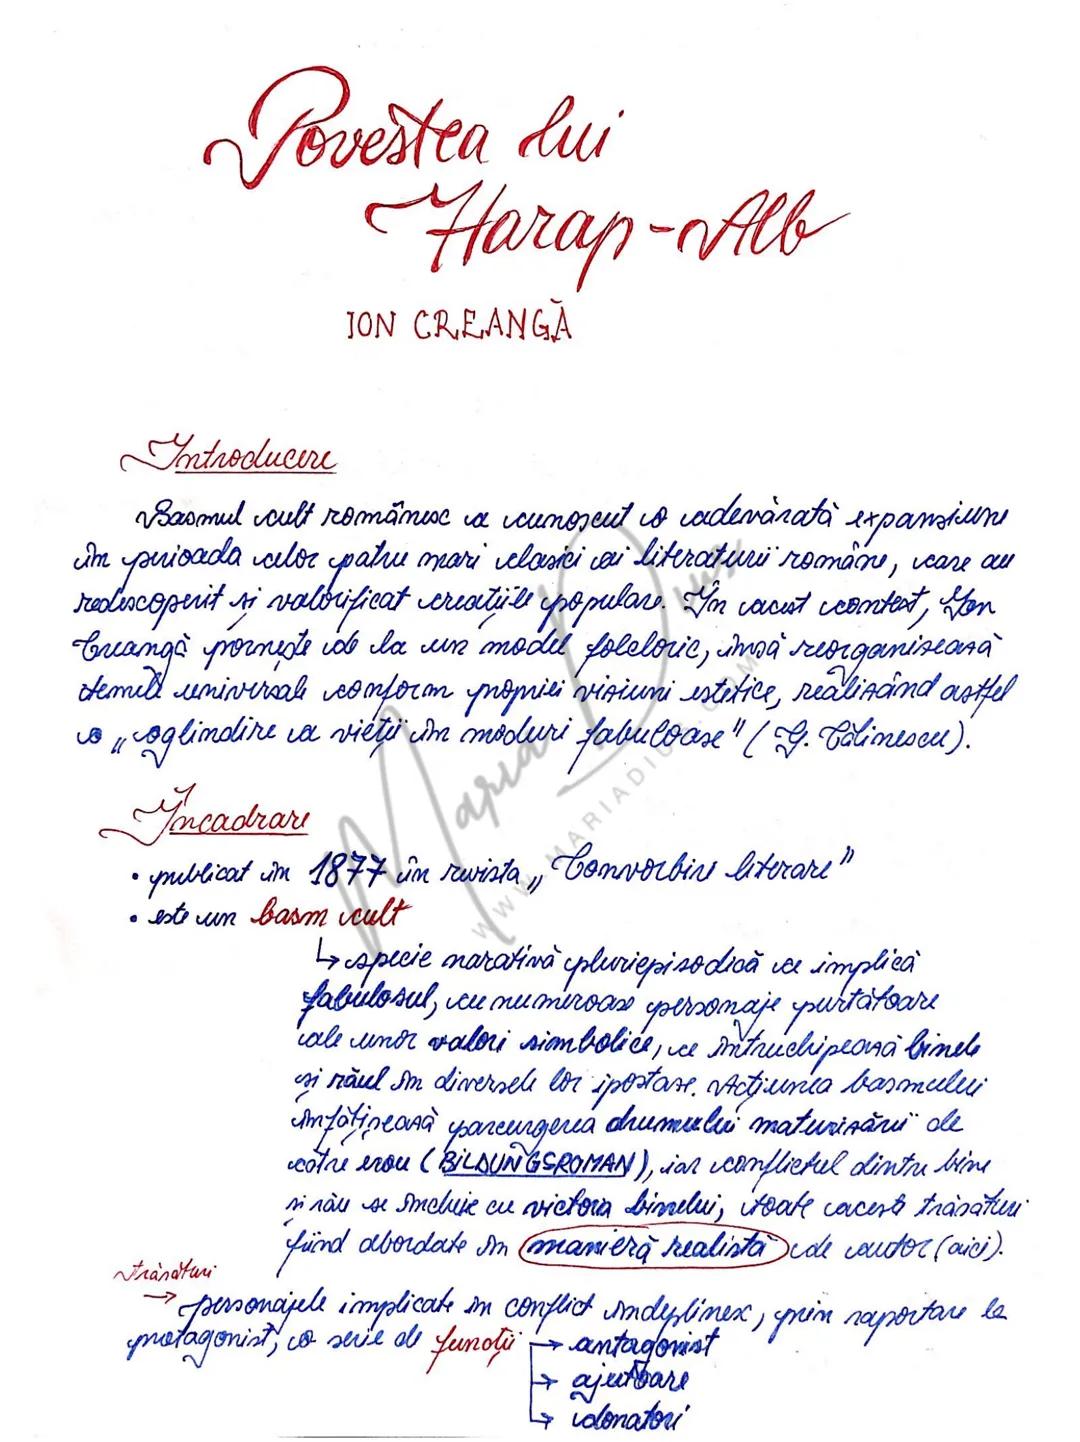 Povestea lui
Harap-Alb
ION CREANGĂ
Introducere
Basmul cult românesc a cunoscut o adevărată expansiune
în perioada celor patru mari clasici ai literaturii române, care au
redescoperit și valorificat creațiile populare. În acest context, Ion
Creangă pornește de la un model folcloric, însă reorganizează
temele universale conform propriei viziuni estetice, realizând astfel
o „oglindire a vieții în moduri fabuloase" (G. Călinescu).
Încadrare
• publicat în 1877 în revista „Convorbiri literare"
• este un basm cult
↳ specie narativă pluriepisodică ce implică
fabulosul, cu numeroase personaje purtătoare
ale unor valori simbolice, ce întruchipează binele
și răul în diversele lor ipostaze. Acțiunea basmului
înfățișează parcurgerea drumului maturizării de
către erou (BILDUNGSROMAN), iar conflictul dintre bine
și rău se încheie cu victoria binelui, toate aceste trăsături
fiind abordate în manieră realistă de autor (aici).
trăsături
→ personajele implicate în conflict îndeplinesc, prin raportare la
protagonist, o serie de funcții → antagonist
→ ajutoare
→ donatori
Maria Dius
WWW.MARIADIUS.COM